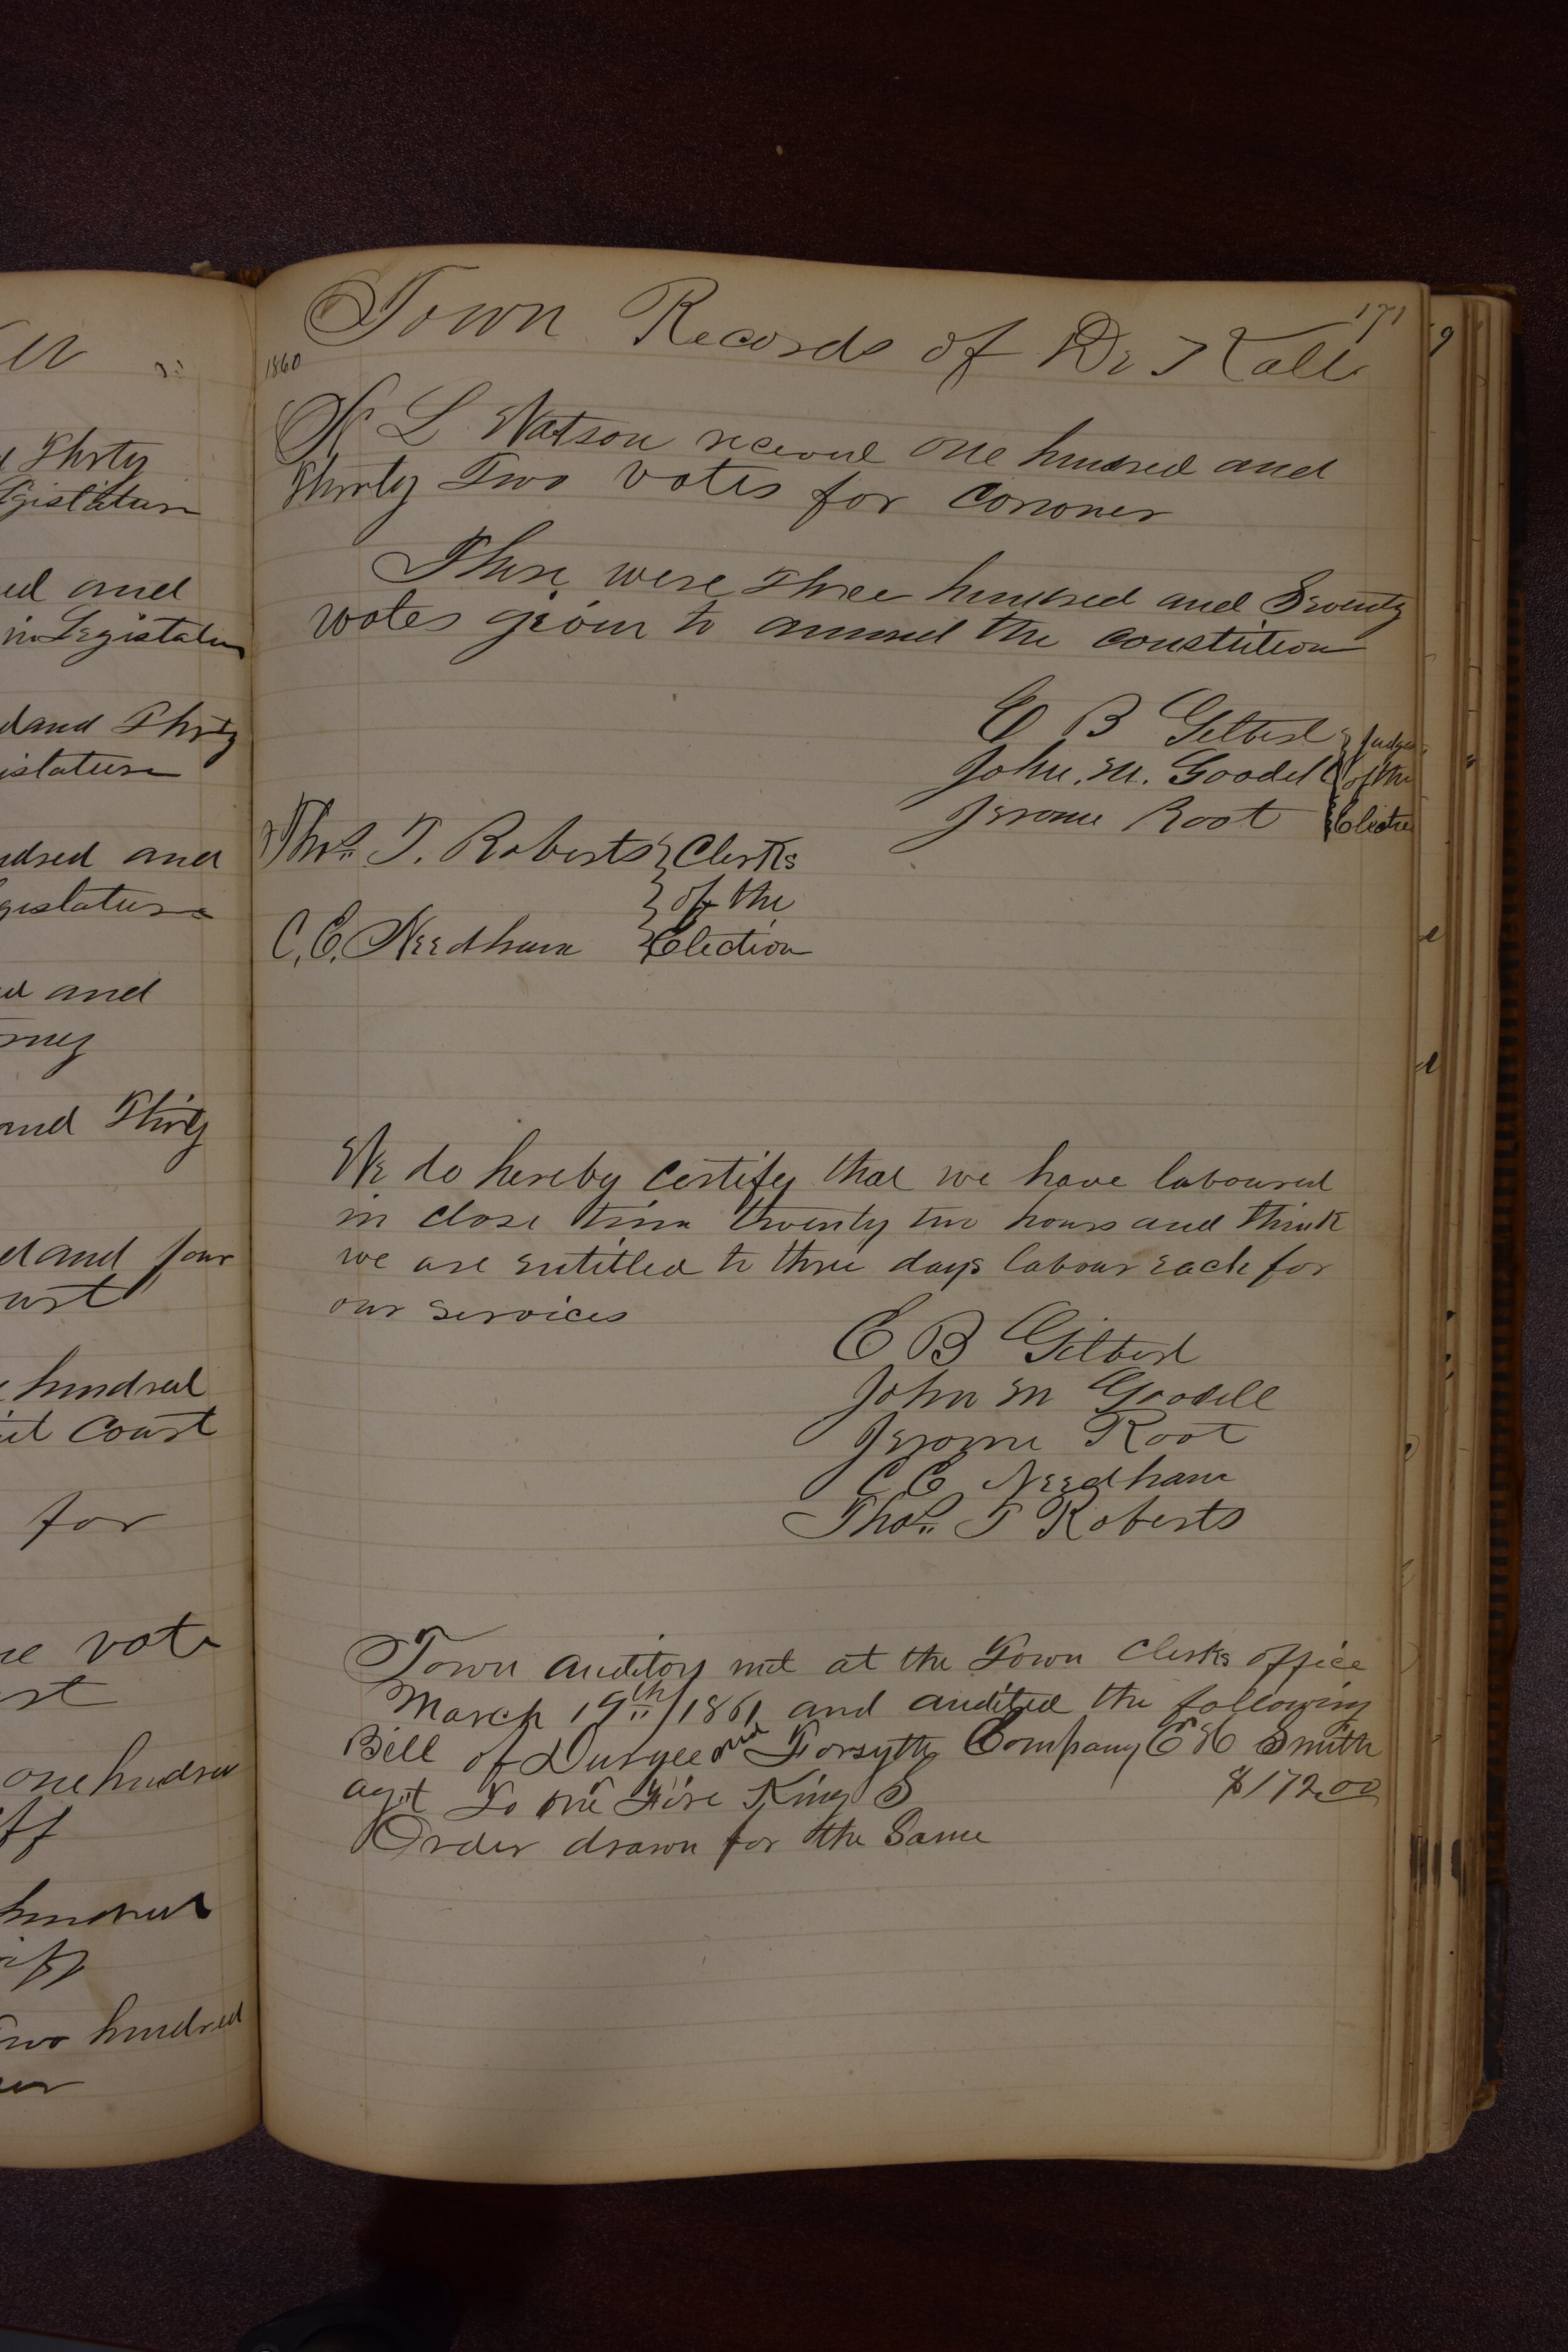 171
Town Records of De Kalb
1860
H L Watson received one hundred and
Thirty Two votes for Coroner
There were Three hundred and Seventy
votes given to amend the constitution
E B Gilbert } Judges
John. M. Goodell } of the
Jerome Root } Election
Thos. T. Roberts } Clerks
} of the
C. E. Needham } Election
We do hereby certify that we have laboured
in close time twenty two hours and think
we are entitled to three days labour each for
our services
E B Gilbert
John M Goodell
Jerome Root
C E Needham
Thos. T Roberts
Town auditors met at the Town Clerks office
March 19th/1861 and audited the following
Bill of Durgee and Forsyth Company E H Smith
agt To one Fire King S $172.00
Order drawn for the Same
Thirty
and
and Thirty
hundred and
and
and Thirty
and four
hundred
Court
for
vote
one hundred
hundred
Two hundred